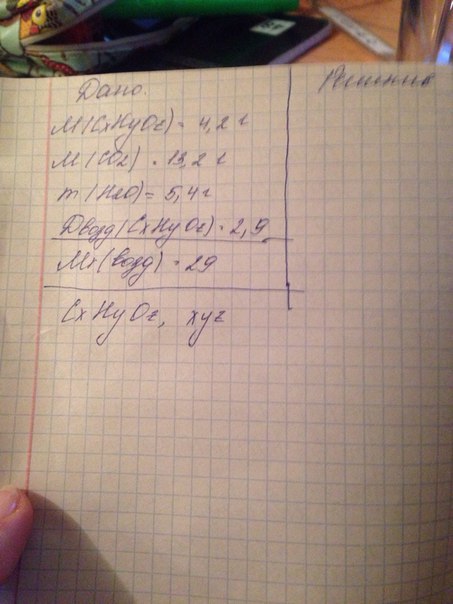 Дано.
Решение
M(CxHyOz) = 4,2 г
M(CO2) = 13,2 г
m(H2O) = 5,4 г
Dвозд(CxHyOz) = 2,9
Mr(возд) = 29
CxHyOz, xyz